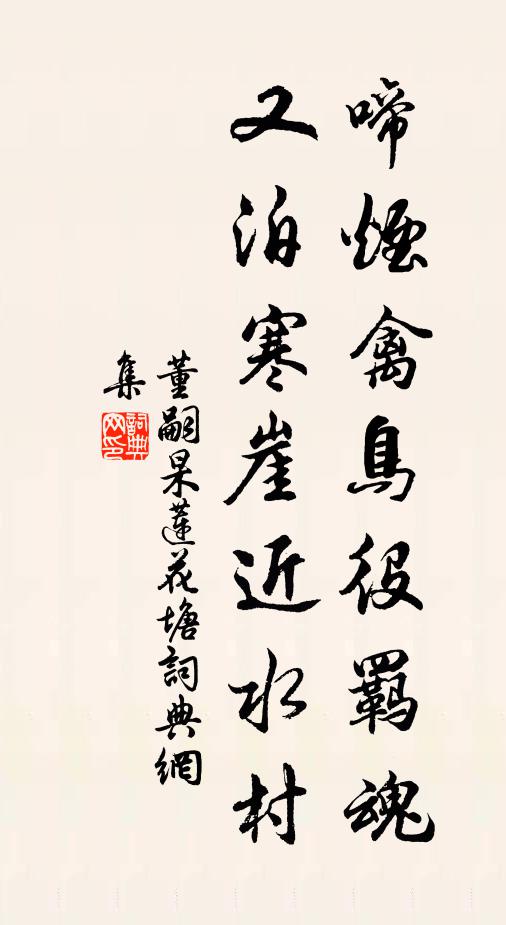 啼煙禽鳥役羈魂
又泊寒崖近水村
董嗣杲蓮花塘詞典網
集
詞典网印